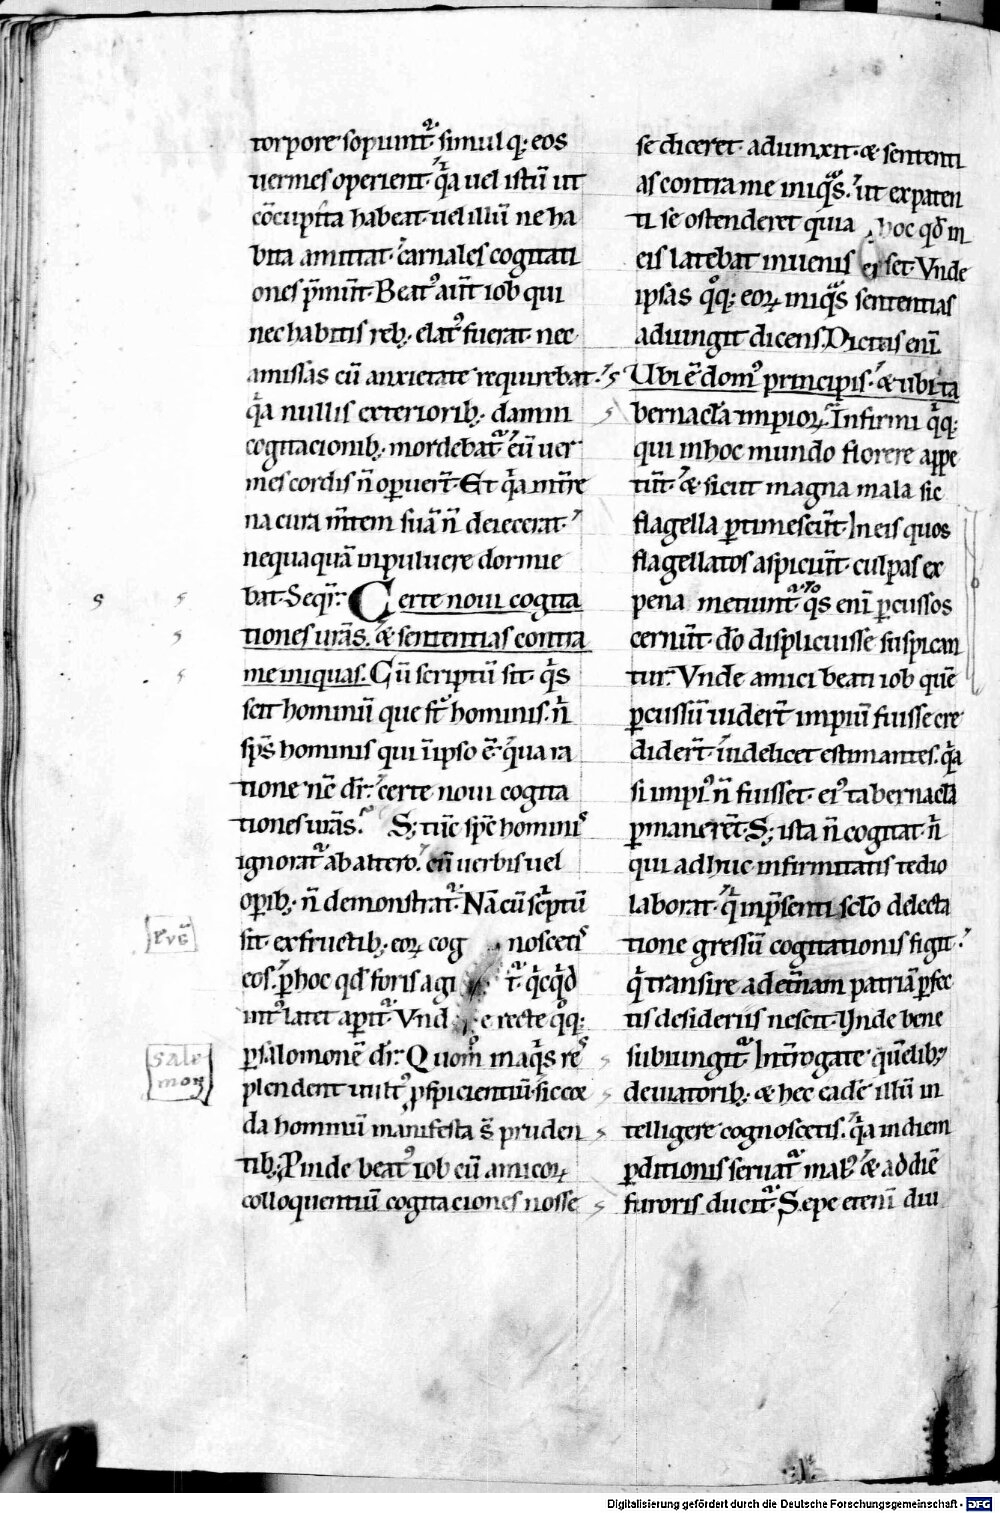 torpore sopiunt᷑. simul q; eos
uermes operient. q̓a uel istū ut
cōcupita habeat. uel illū ne ha
bita amittat. carnales cogitati
ones p̄mūt. Beatꝰ aūt iob qui
nec habitis reb; elatꝰ fuerat. nec
amissas cū anxietate requirebat.
q̓a nullis exteriorib; damni
cogitacionib; mordebat᷑. eū uer
mes cordis n̄ oꝑuert̄. Et q̓a int̄re
na cura m̄tem suā n̄ deiecerat.
nequaquā in puluere dormie
bat. Seqr̄. Certe noui cogita
tiones urās. & sententias contra
me iniquas. Cū scriptū sit. q̓s
scit hominū que st̄ hominis. n̄
sp̄s hominis qui in ipso ē. q̓ua ra
tione nc̄ dr̄. certe noui cogita
tiones urās. S; tūc sp̄c hominiꝰ
ignorat᷑ ab altero. cū uerbis uel
oꝑib; n̄ demonstrat᷑. Nā cū sc̓ptū
sit. ex fructib; eoꝝ cog noscetis
eos. ꝑ hoc qd̄ foris agi t᷑. q̓cq̓d
intꝰ latet aꝑit᷑. Vnd e recte qͦq;
ꝑ salomonē dr̄. Quomͦ in aq̓s reꝰ
plendent uultꝰ ꝓspicientiū. sic cor
da hominū manifesta s̄ pruden
tib; Pinde beatꝰ iob cū amicoꝝ
colloquentiū cogitaciones nosse
eug̅
sale
moꝝ
se diceret. adiunxit. & sententi
as contra me iniq̓s. ut ex paten
ti se ostenderet quia hoc qd̄ in
eis latebat inuenis set. Vnde
ipsas qͦq; eoꝝ iniq̓s sententias
adiungit dicens. Dicitis enī.
Ubi ē domꝰ principis. & ubi ta
bernacl̄a impioꝝ. Infirmi q̓q;
qui in hoc mundo florere appe
tūt. & sicut magna mala sic
flagella ꝑtimescūt. In eis quos
flagellatos aspiciūt. culpas ex
pena metiunt᷑. q̓s enī ꝑcussos
cernūt. dō displicuisse suspican
tur. Vnde amici beati iob quē
ꝑcussū uidert̄ impiū fuisse cre
didert̄. uidelicet estimantes. q̓a
si impiꝰ n̄ fuisset. eiꝰ tabernacl̄a
ꝑmanerēt. S; ista n̄ cogitat. n̄
qui adhuc infirmitatis tedio
laborat. q̓ in p̄senti scl̄o delecta
tione gressū cogitationis figit.
q̓ transire ad et̄nam patriā ꝑfec
tis desideriis nescit. Vnde bene
subiungit᷑. Int̄rogate quēlib;
de uiatorib; & hec eadē illū in
telligere cognoscetis. q̓a in diem
ꝑditionis seruat᷑ malꝰ. & ad diē
furoris ducit᷑. Sepe etenī diu